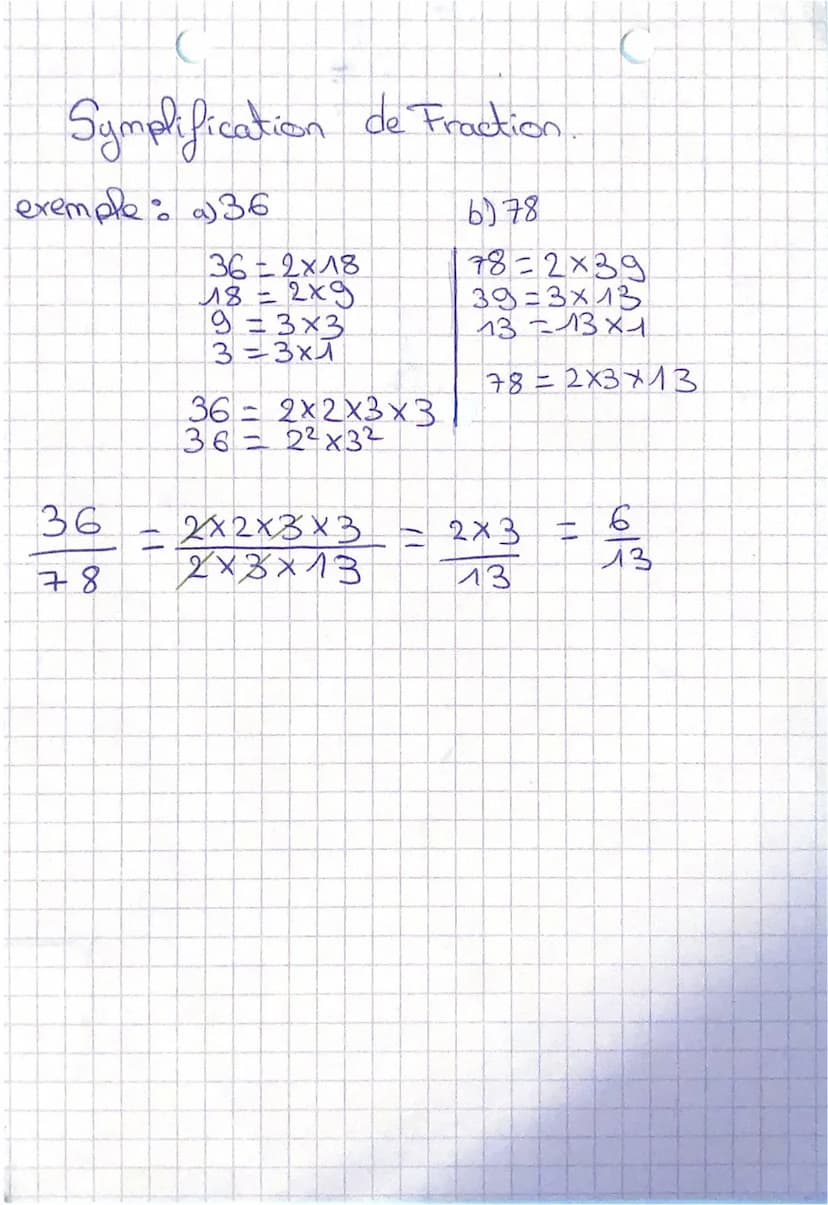 Symplification de Fraction.
exemple : a) 36
36 = 2×18
18 = 2×9
9 = 3×3
3 = 3×1
36 = 2×2×3×3
36 = 2²×3²
b) 78
78 = 2×39
39 = 3×13
13 = 13×1
78 = 2×3×13
36/78 = 2×2×3×3/2×3×13 = 2×3/13 = 6/13